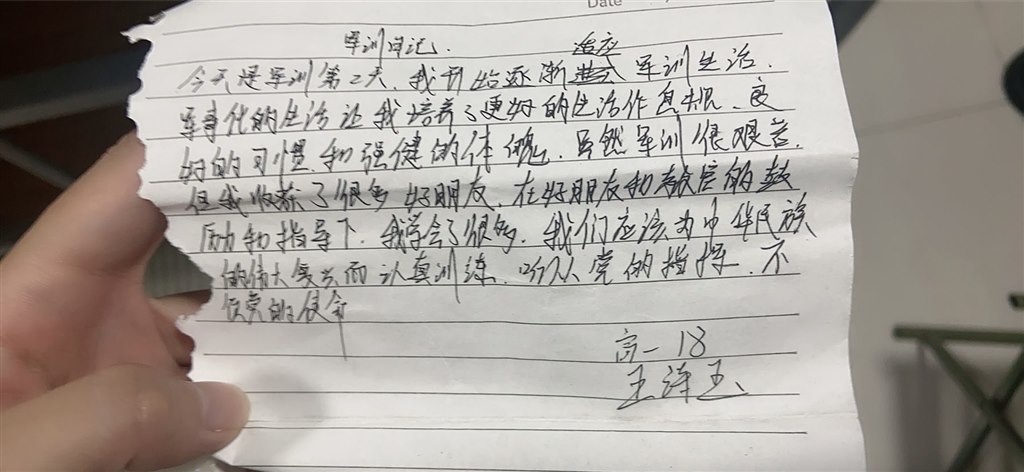 Date
军训日记.
适应
今天是军训第2天、我开始逐渐 军训生活.
军事化的生活让我培养了更好的生活作息规、良
好的习惯.和强健的体魄.虽然军训很艰苦.
但我收获了很多好朋友.在好朋友和教官的鼓
励和指导下.我学会了很多.我们应该为中华民族
的伟大复兴而认真训练.听从党的指挥.不
负党的使命
高一 18